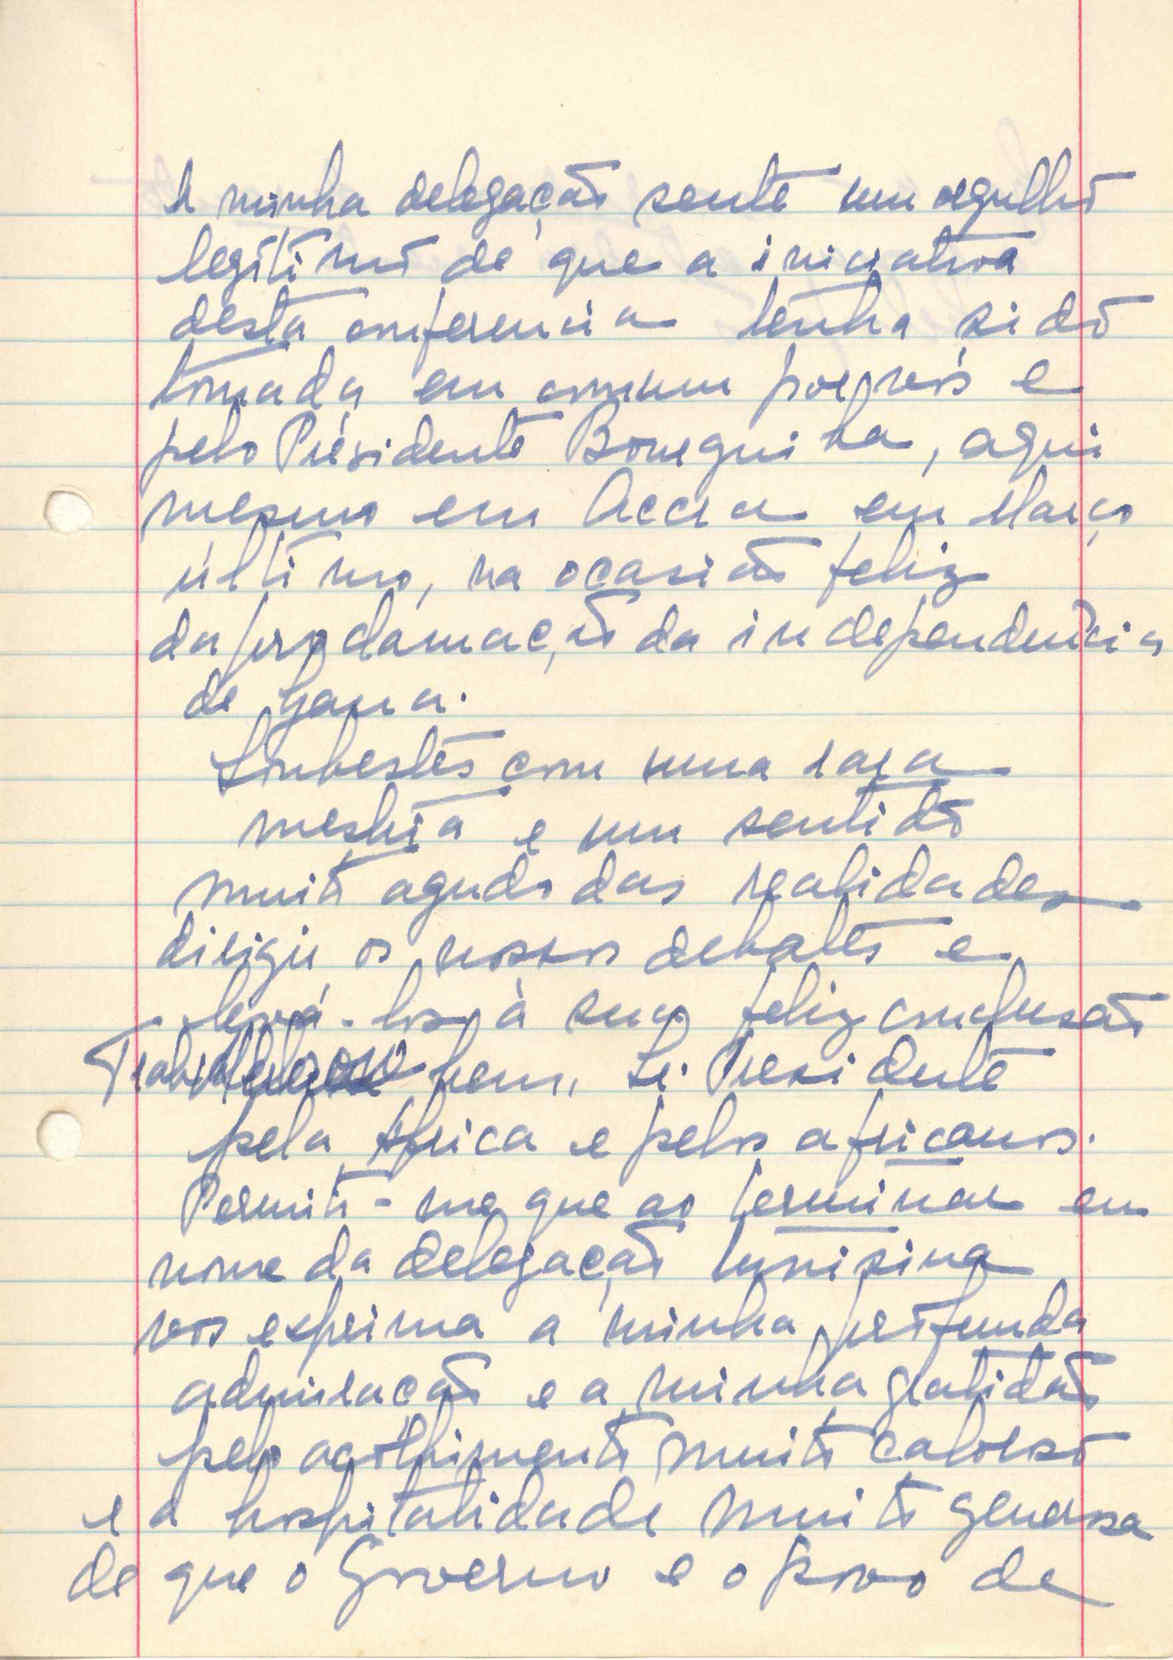 A minha delegação sente um orgulho
legitimo de que a iniciativa
desta conferencia tenha sido
tomada em comum por vós e
pelo Presidente Bourguiba, aqui
mesmo em Accra em Março
último, na ocasião feliz
da proclamação da independência
de Gana.
Soubestes com uma rara
mestria e um sentido
muito agudo das realidades
dirigir os nossos debates e
levá-los à sua feliz conclusão
bem, Sr. Presidente
pela Africa e pelos africanos.
Permiti-me que ao terminar em
nome da delegação tunisina
vos exprima a minha profunda
admiração e a minha gratidão
pelo acolhimento muito caloroso
e a hospitalidade muito generosa
de que o Governo e o povo de